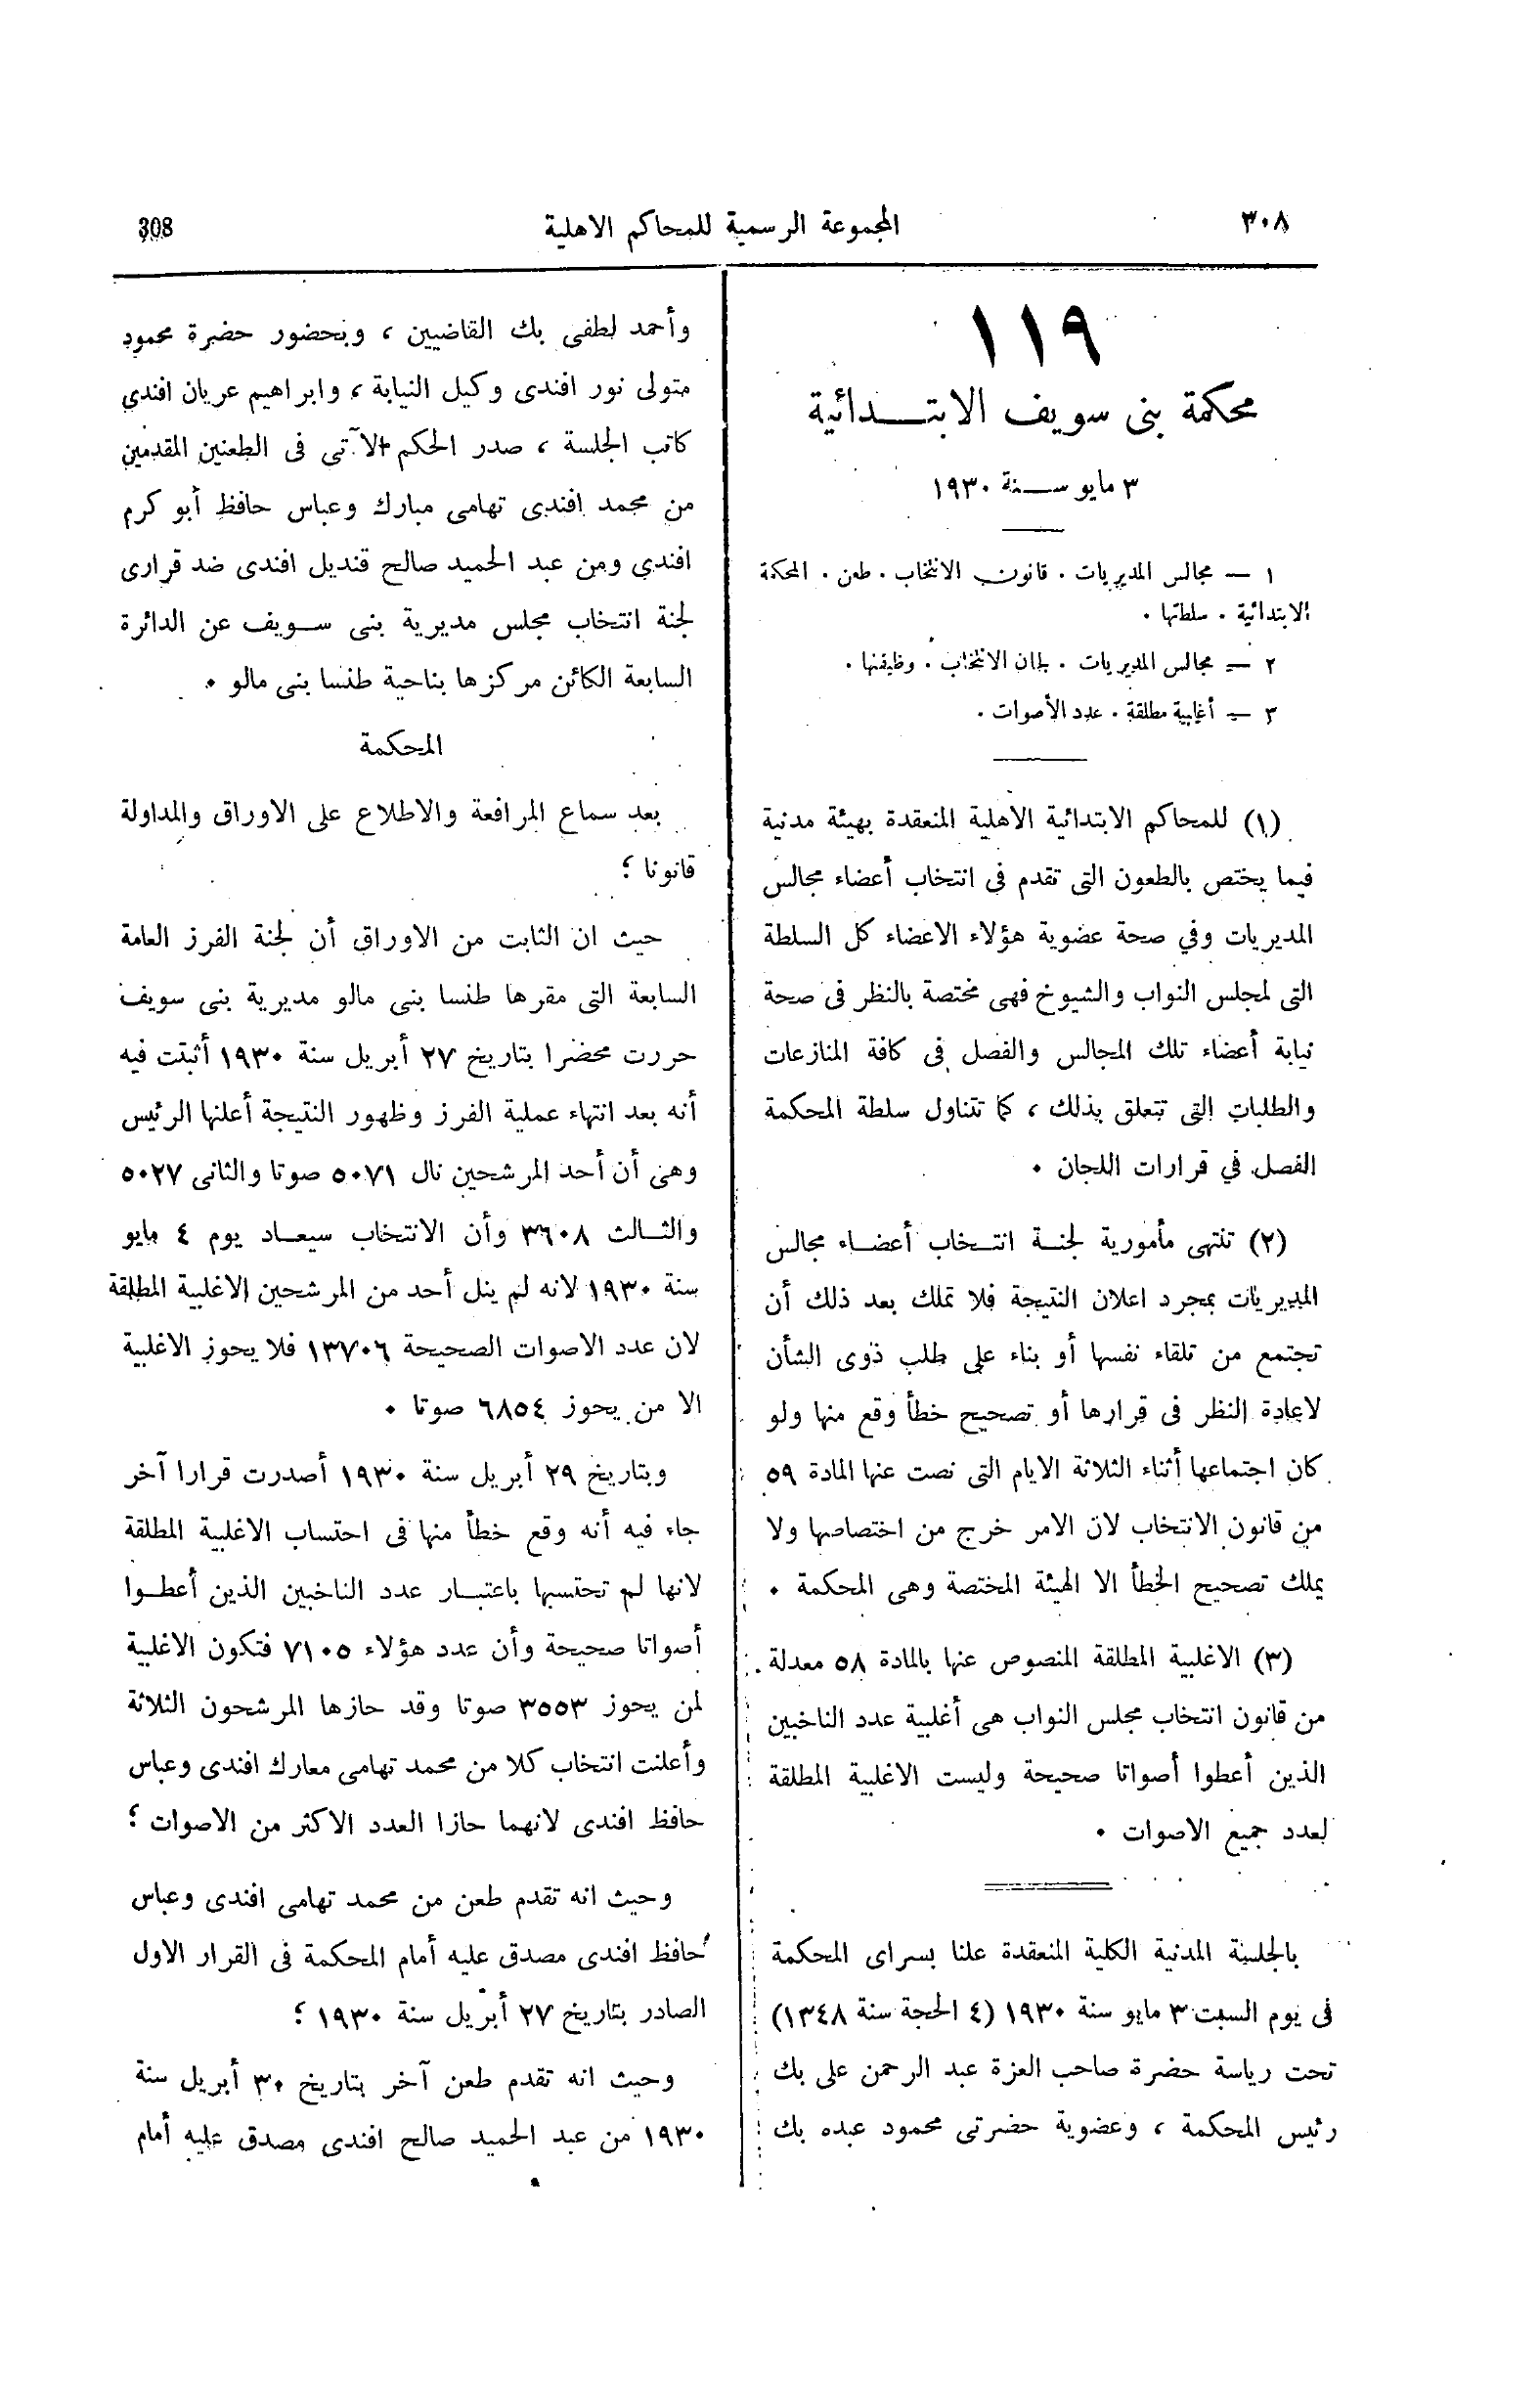 ٣٠٨
المجموعة الرسمية للمحاكم الاهلية
308
١١٩
محكمة بنى سويف الابتـــدائية
٣ مايو ســـنة ١٩٣٠
١ — مجالس المديريات . قانون الانتخاب . طعن . المحكمة
الابتدائية . سلطتها .
٢ — مجالس المديريات . لجان الانتخاب . وظيفتها .
٣ — أغلبية مطلقة . عدد الأصوات .
(١) للمحاكم الابتدائية الاهلية المنعقدة بهيئة مدنية
فيما يختص بالطعون التى تقدم فى انتخاب أعضاء مجالس
المديريات وفي صحة عضوية هؤلاء الاعضاء كل السلطة
التى لمجلس النواب والشيوخ فهى مختصة بالنظر فى صحة
نيابة أعضاء تلك المجالس والفصل فى كافة المنازعات
والطلبات التى تتعلق بذلك ، كما تتناول سلطة المحكمة
الفصل في قرارات اللجان .
(٢) تنتهى مأمورية لجنـة انتـخاب أعضـاء مجالس
المديريات بمجرد اعلان النتيجة فلا تملك بعد ذلك أن
تجتمع من تلقاء نفسها أو بناء على طلب ذوى الشأن
لاعادة النظر فى قرارها أو تصحيح خطأ وقع منها ولو
كان اجتماعها أثناء الثلاثة الايام التى نصت عنها المادة ٥٩
من قانون الانتخاب لان الامر خرج من اختصاصها ولا
يملك تصحيح الخطأ الا الهيئة المختصة وهى المحكمة .
(٣) الاغلبية المطلقة المنصوص عنها بالمادة ٥٨ معدلة
من قانون انتخاب مجلس النواب هى أغلبية عدد الناخبين
الذين أعطوا أصواتا صحيحة وليست الاغلبية المطلقة
لعدد جميع الاصوات .
بالجلسة المدنية الكلية المنعقدة علنا بسراى المحكمة
فى يوم السبت ٣ مايو سنة ١٩٣٠ (٤ الحجة سنة ١٣٤٨)
تحت رياسة حضرة صاحب العزة عبد الرحمن على بك
رئيس المحكمة ، وعضوية حضرتى محمود عبده بك
وأحمد لطفى بك القاضيين ، وبحضور حضرة محمود
متولى نور افندى وكيل النيابة ، وابراهيم عريان افندى
كاتب الجلسة ، صدر الحكم الآتى فى الطعنين المقدمين
من محمد افندى تهامى مبارك وعباس حافظ أبو كرم
افندى ومن عبد الحميد صالح قنديل افندى ضد قرارى
لجنة انتخاب مجلس مديرية بنى ســويف عن الدائرة
السابعة الكائن مركزها بناحية طنسا بنى مالو .
المحكمة
بعد سماع المرافعة والاطلاع على الاوراق والمداولة
قانونا ؛
حيث ان الثابت من الاوراق أن لجنة الفرز العامة
السابعة التى مقرها طنسا بنى مالو مديرية بنى سويف
حررت محضرا بتاريخ ٢٧ أبريل سنة ١٩٣٠ أثبتت فيه
أنه بعد انتهاء عملية الفرز وظهور النتيجة أعلنها الرئيس
وهى أن أحد المرشحين نال ٥٠٧١ صوتا والثانى ٥٠٢٧
والثـالث ٣٦٠٨ وأن الانتخاب سيعـاد يوم ٤ مايو
سنة ١٩٣٠ لانه لم ينل أحد من المرشحين الاغلبية المطلقة
لان عدد الاصوات الصحيحة ١٣٧٠٦ فلا يحوز الاغلبية
الا من يحوز ٦٨٥٤ صوتا .
وبتاريخ ٢٩ أبريل سنة ١٩٣٠ أصدرت قرارا آخر
جاء فيه أنه وقع خطأ منها فى احتساب الاغلبية المطلقة
لانها لم تحتسبها باعتبـار عدد الناخبين الذين أعطـوا
أصواتا صحيحة وأن عدد هؤلاء ٧١٠٥ فتكون الاغلبية
لمن يحوز ٣٥٥٣ صوتا وقد حازها المرشحون الثلاثة
وأعلنت انتخاب كلا من محمد تهامى معارك افندى وعباس
حافظ افندى لانهما حازا العدد الاكثر من الاصوات ؛
وحيث انه تقدم طعن من محمد تهامى افندى وعباس
حافظ افندى مصدق عليه أمام المحكمة فى القرار الاول
الصادر بتاريخ ٢٧ أبريل سنة ١٩٣٠ ؛
وحيث انه تقدم طعن آخر بتاريخ ٣٠ أبريل سنة
١٩٣٠ من عبد الحميد صالح افندى مصدق عليه أمام